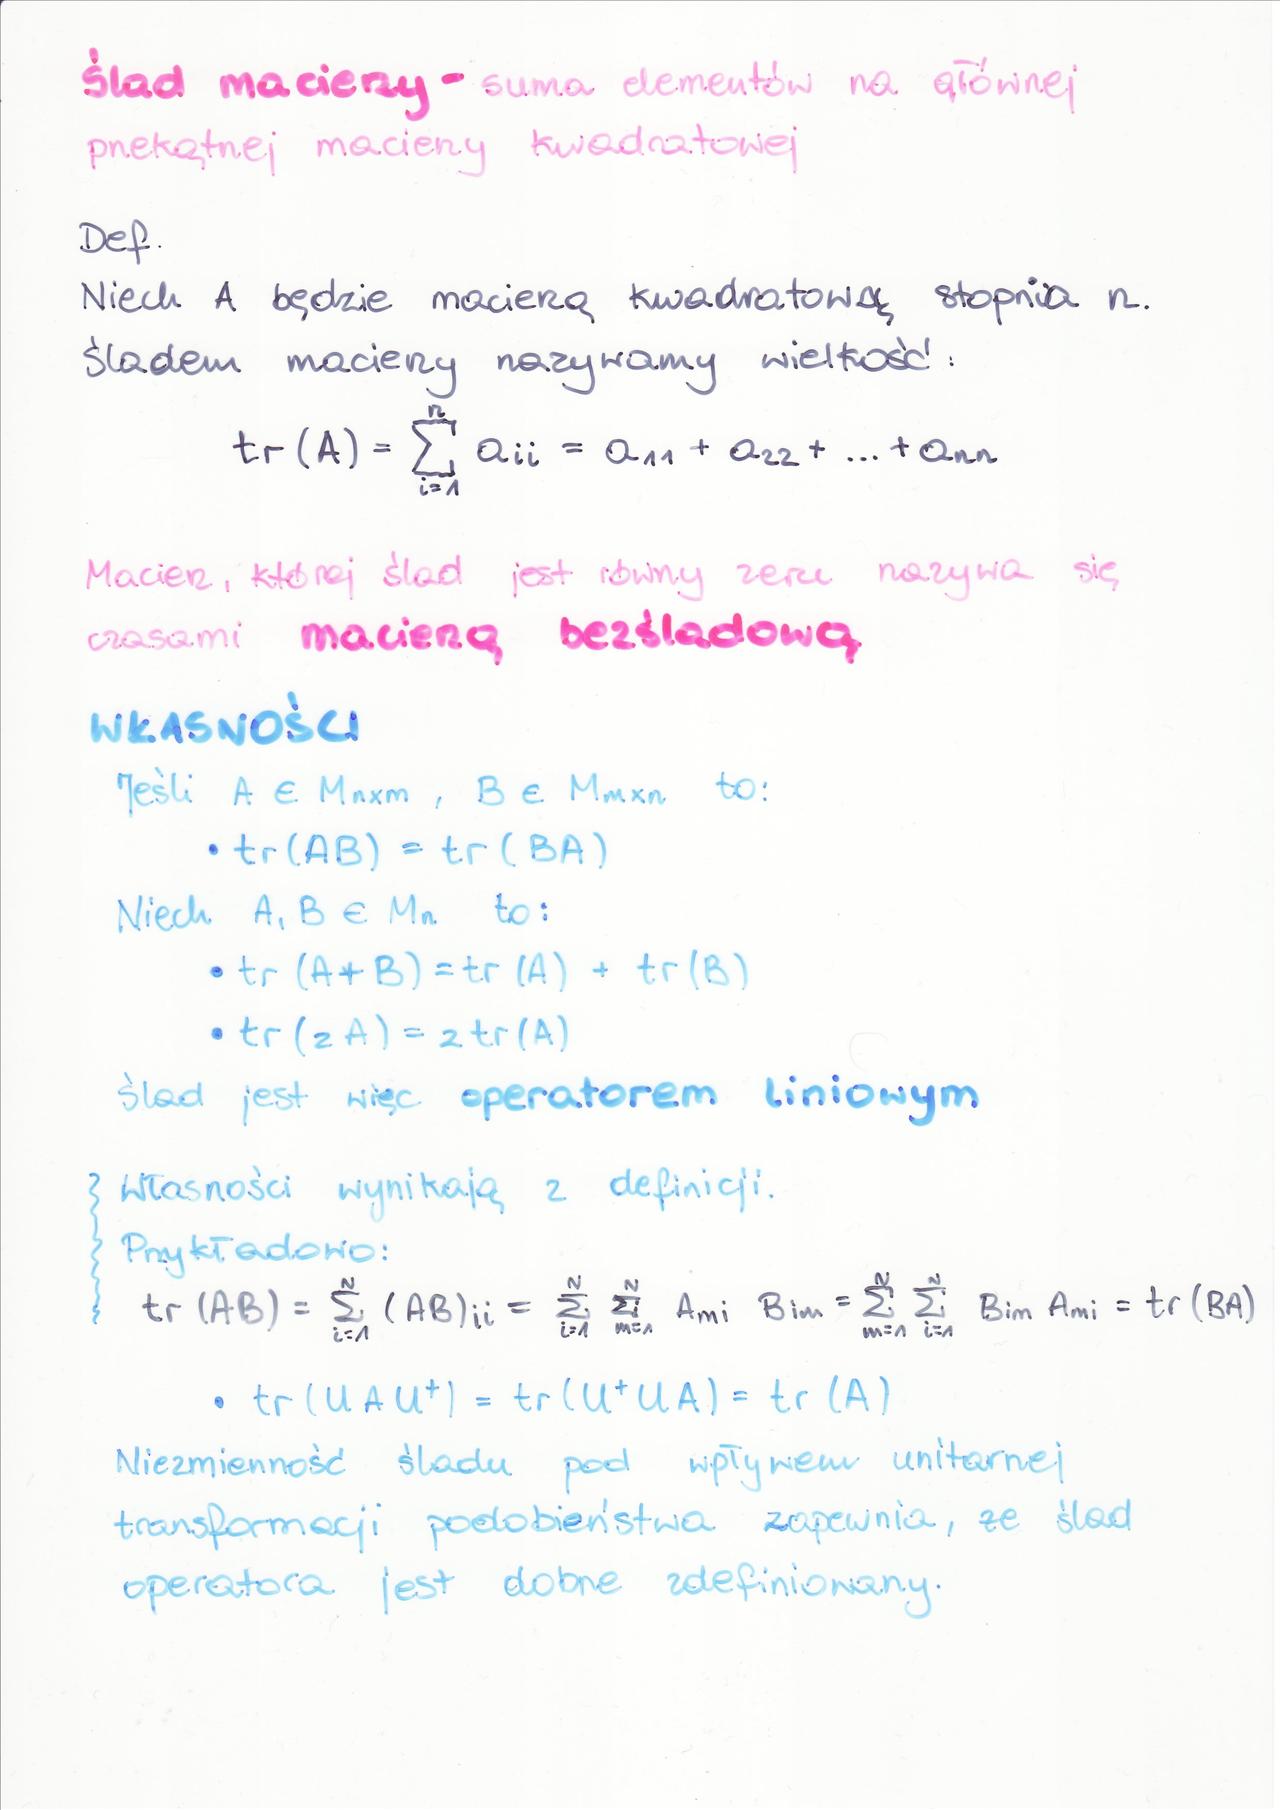 Ślad macierzy - suma elementów na głównej
przekątnej macierzy kwadratowej
Def.
Niech A będzie macierzą kwadratową stopnia n.
Śladem macierzy nazywamy wielkość:
tr(A) = ∑_{i=1}^{n} a_{ii} = a_{11} + a_{22} + ... + a_{nn}
Macierz, której ślad jest równy zeru nazywa się
czasami macierzą bezśladową
WŁASNOŚCI
Jeśli A ∈ M_{n×m}, B ∈ M_{m×n} to:
• tr(AB) = tr(BA)
Niech A, B ∈ M_n to:
• tr(A+B) = tr(A) + tr(B)
• tr(zA) = z tr(A)
Ślad jest więc operatorem liniowym
Własności wynikają z definicji.
Przykładowo:
tr(AB) = ∑_{i=1}^{N} (AB)_{ii} = ∑_{i=1}^{N} ∑_{m=1}^{N} A_{mi} B_{im} = ∑_{m=1}^{N} ∑_{i=1}^{N} B_{im} A_{mi} = tr(BA)
• tr(UAU⁺) = tr(U⁺UA) = tr(A)
Niezmienność śladu pod wpływem unitarnej
transformacji podobieństwa zapewnia, ze ślad
operatora jest dobrze zdefiniowany.